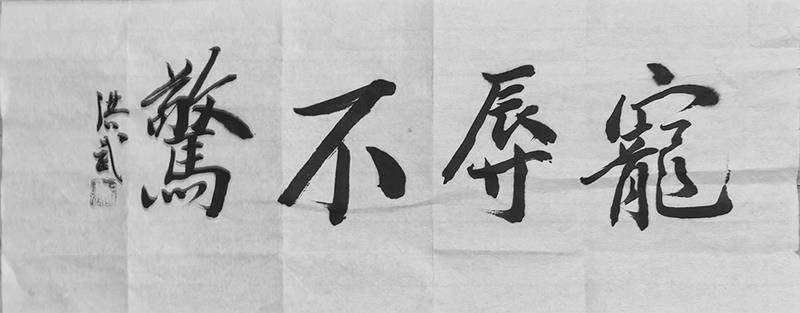 寵辱不驚
洪武